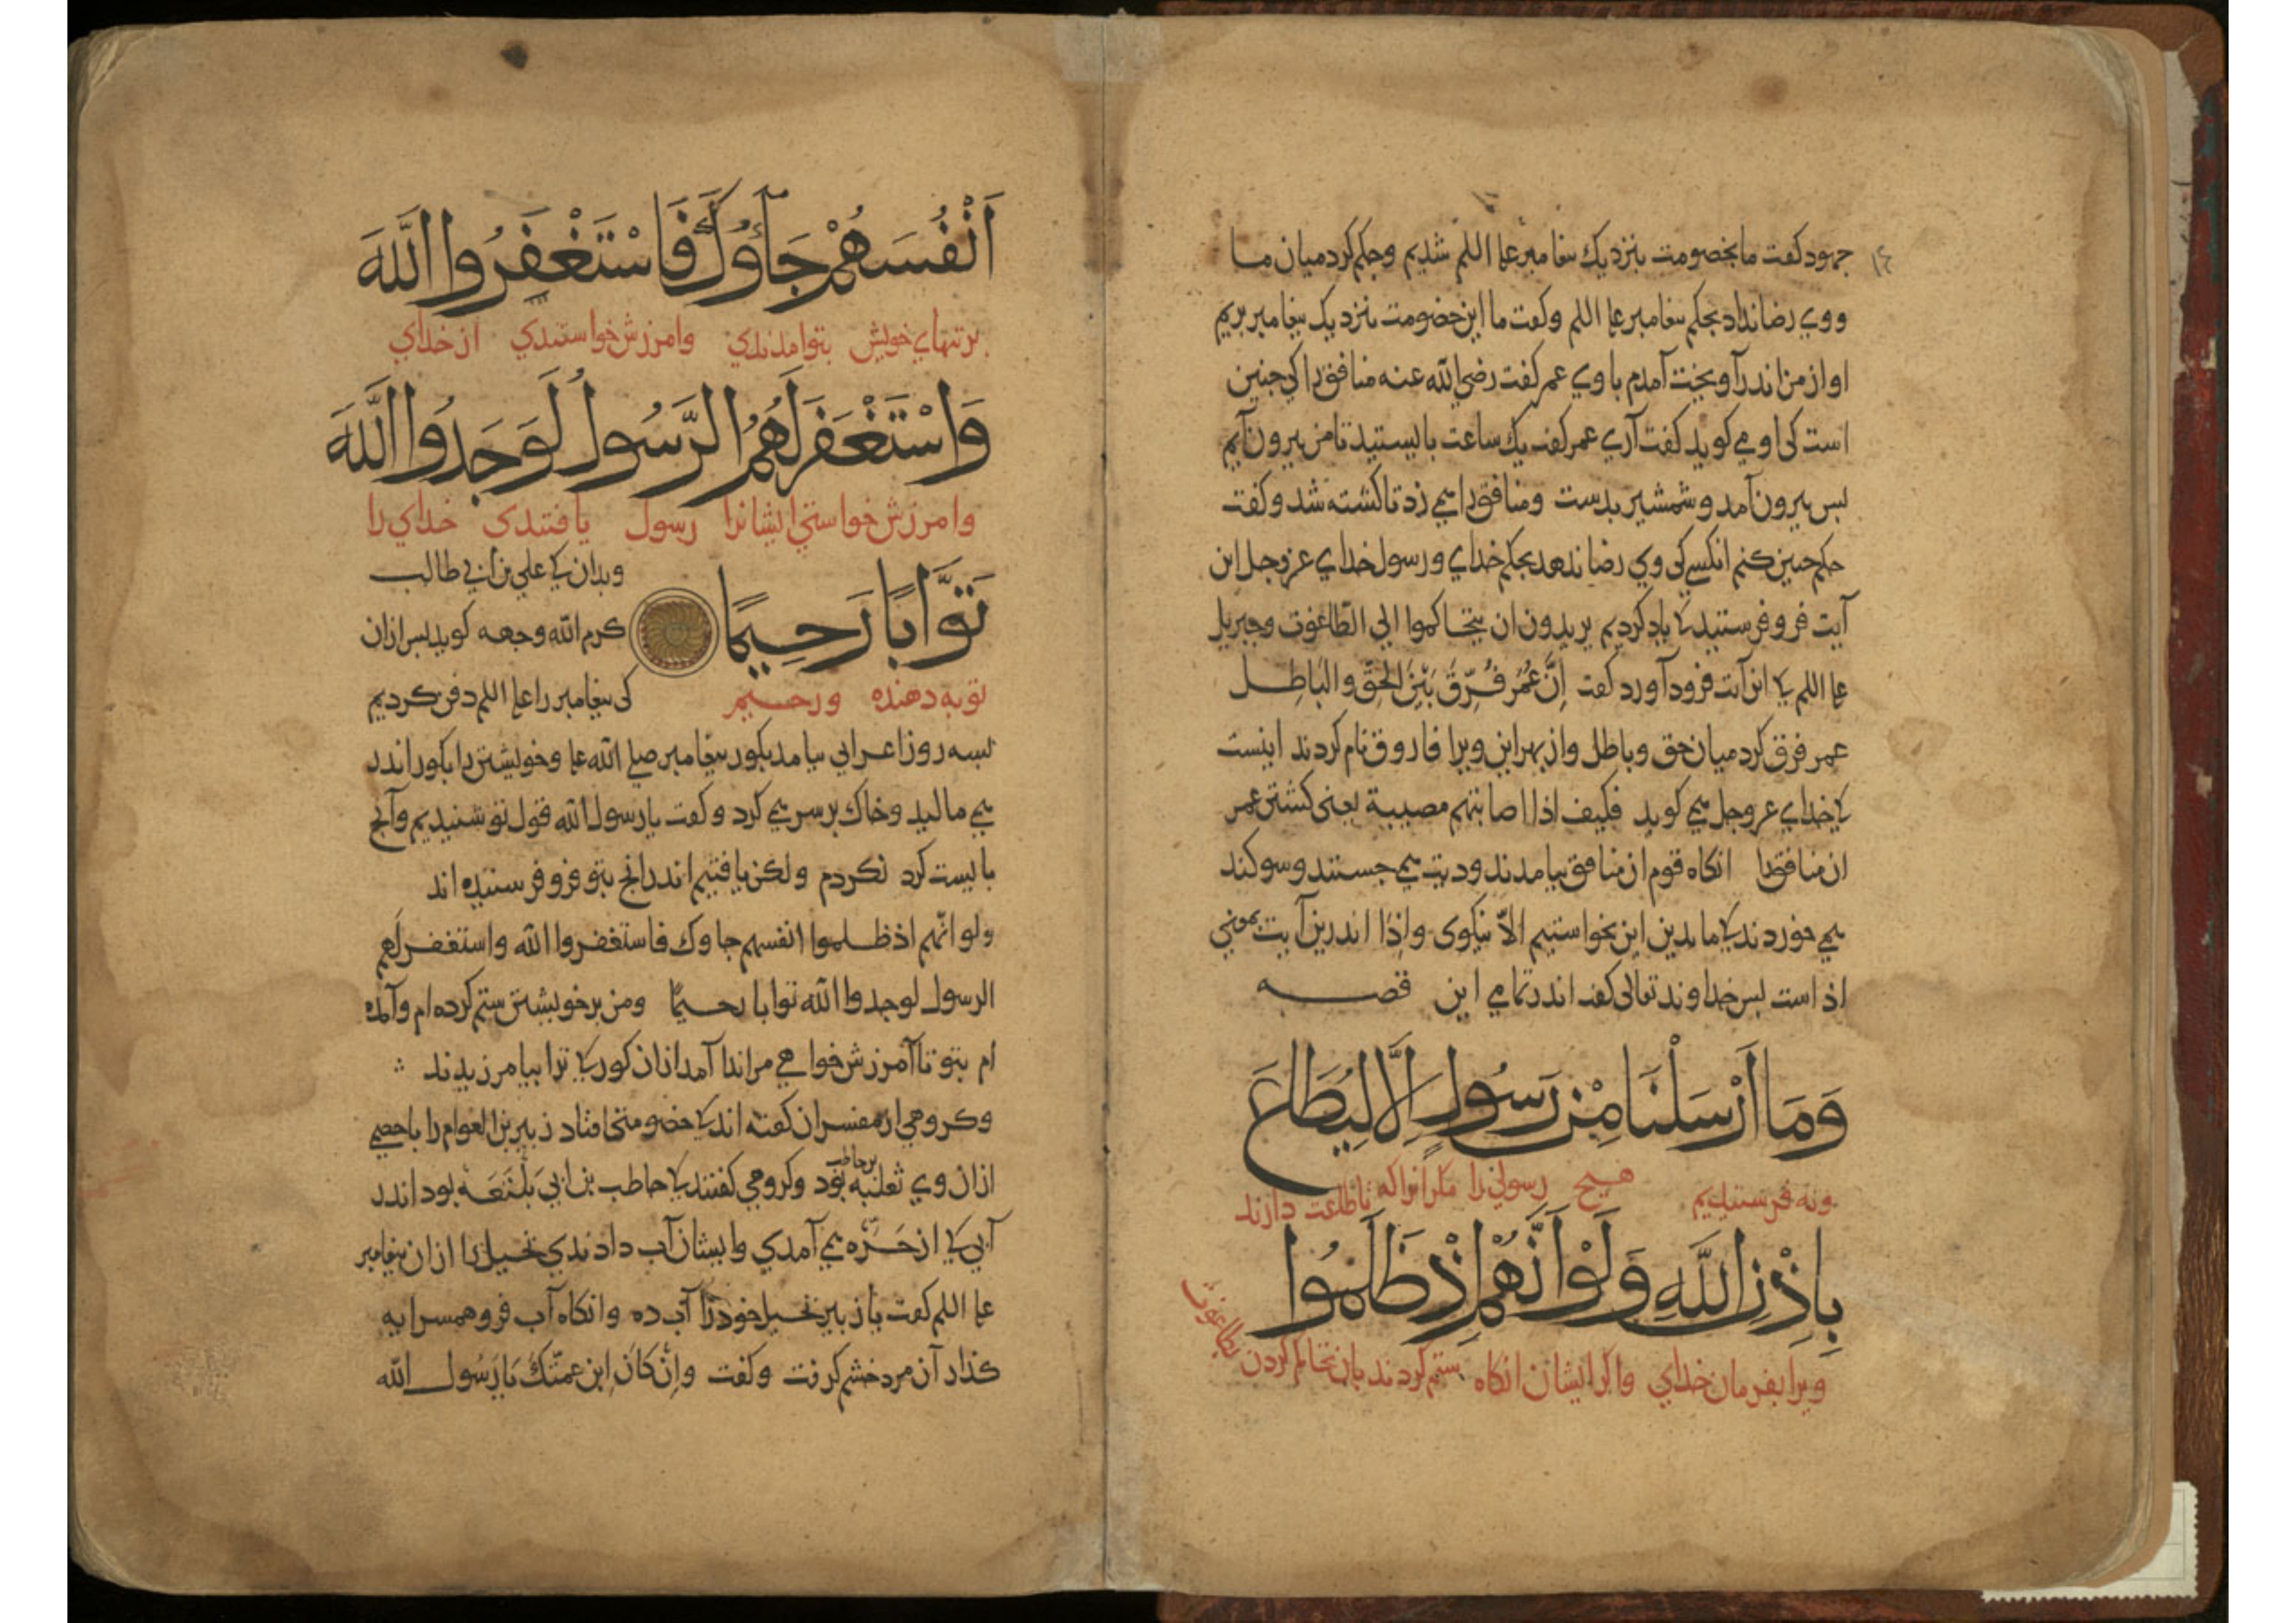 جهود کفت ما بخصومت بنزدیك بیغامبر علیه السلم شدیم وحکم کرد میان ما
ووي رضا نداد بحکم بیغامبر علیه السلم وکفت ما این خصومت بنزدیک بیغامبر بریم
او از من اندر آویخت آمدم باوي عمر کفت رضي الله عنه منافق را کي جنین
است کی او می کوید کفت آری عمر کفت یك ساعت بایستید تا من بیرون آیم
بس بیرون آمد و شمشیر بدست ومنافق را همی زد تا کشته شد و کفت
حکم جنین کنم انکسي کی وي رضا ندهد بحکم خدای و رسول خدای عزوجل این
آیت فرو فرستید کا یاد کردیم یریدون ان یتحاکموا الی الطاغوت وجبریل
علیه السلم کا این آیت فرود آورد کفت اِنَّ عُمَر فَرَّقَ بَیْنَ الحَقِّ والبَاطِل
عمر فرق کرد میان حق وباطل واز بهر این ویرا فاروق نام کردند اینست
کا خدای عزوجل همی کوید فکیف اذا اصابتهم مصیبة یعنی کشتن عمر
ان منافق را انکاه قوم ان منافق بیامدند ودیت همی جستند وسوکند
همی خوردند کا ما بدین این نخواستیم الّا نیکوی واِذا اندرین آیت بمعنی
اذ است بس خداوند تعالی کفت اندر تمامي این قصه
وَمَا اَرْسَلْنَا مِنْ رَسُولٍ اِلَّا لِیُطَاعَ
ونه فرستیدیم هیچ رسولي را مکر انرا که تا طاعت دارند
بِاِذْنِ اللَّهِ وَلَوْ اَنَّهُمْ اِذْ ظَلَمُوا
ویرا بفرمان خدای واکر ایشان انکاه ستم کردند بان تحاکم کردن
بطاغوت
اَنْفُسَهُمْ جَآؤُكَ فَاسْتَغْفَرُوا اللَّهَ
بر تنهای خویش بتو آمدندي وامرزش خواستندي از خدای
وَاسْتَغْفَرَ لَهُمُ الرَّسُولُ لَوَجَدُوا اللَّهَ
وامرزش خواستي ایشانرا رسول یافتندی خدای را
تَوَّابًا رَحِیمًا
توبه دهنده ورحیم
وبدان کا علي بن ابي طالب
کرم الله وجهه کوید بس ازان
کی بیغامبر را علیه السلم دفن کردیم
بسه روز اعرابي بیامد بکور بیغامبر صلی الله علیه وخویشتن را بکور اندر
همی مالید وخاك بر سر همی کرد و کفت یا رسول الله قول تو شنیدیم وآنچ
بایست کرد نکردم ولکن یافتیم اندرانچ بتو فرو فرستیده اند
ولو انّهم اذ ظلموا انفسهم جاوك فاستغفروا الله واستغفر لهم
الرسول لوجدوا الله توابا رحیمًا ومن بر خویشتن ستم کرده ام وآمده
ام بتو تا آمرزش خواهي مرا ندا آمد ازان کور کا ترا بیامرزیدند
وکروهي از مفسران کفته اند کا خصومتی افتاد زبیر بن العوام را باخصمي
ازان وي ثعلبه بن حاطب بود وکروهي کفتند کا حاطب بن ابي بَلْتَعَه بود اندر
آبی کا از حَرّه همی آمدي وایشان آب دادندي نخیل را ازان بیغامبر
علیه السلم کفت یا زبیر نخیل خود را آب ده وانکاه آب فرو همسرایه
کذار آن مرد خشم کرفت وکفت واِنْ کَانَ اِبن عمّتك یَا رَسُول الله